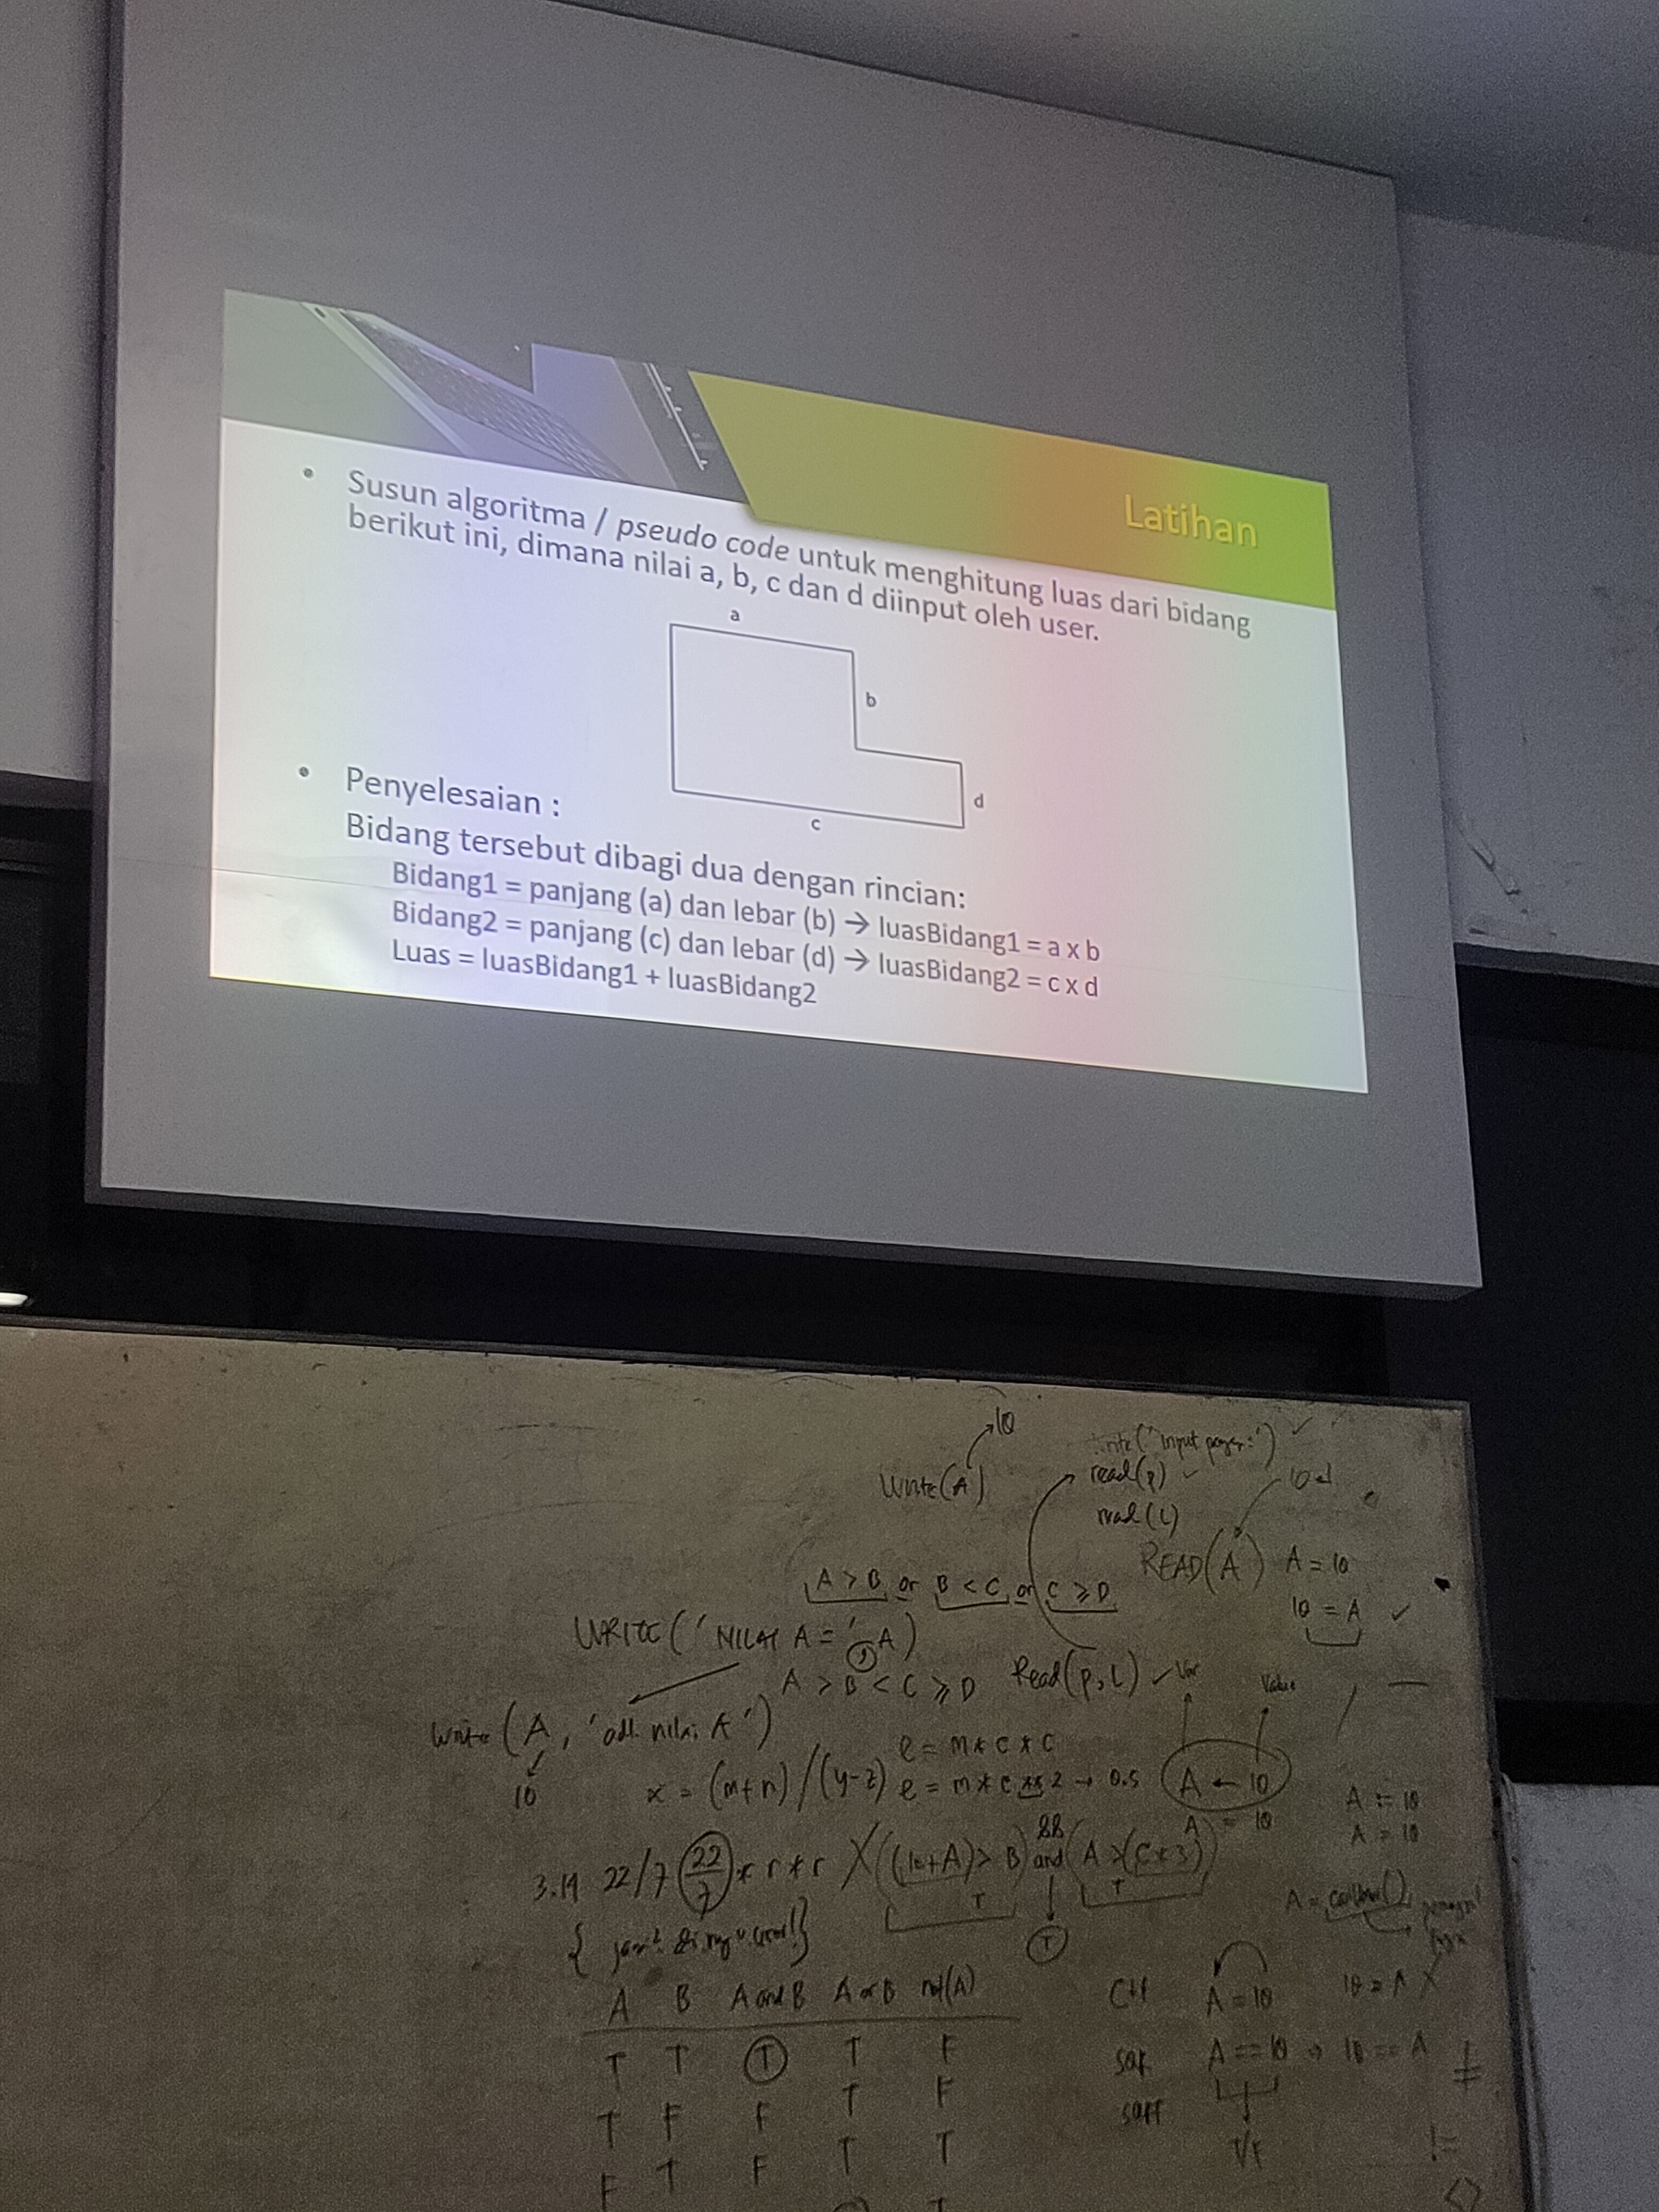 Latihan
• Susun algoritma / pseudo code untuk menghitung luas dari bidang
berikut ini, dimana nilai a, b, c dan d diinput oleh user.
a
b
d
c
• Penyelesaian :
Bidang tersebut dibagi dua dengan rincian:
Bidang1 = panjang (a) dan lebar (b) → luasBidang1 = a x b
Bidang2 = panjang (c) dan lebar (d) → luasBidang2 = c x d
Luas = luasBidang1 + luasBidang2
10
Write(A)
('Input
read(p)
read(L)
READ(A) A = 10
10 = A ✓
A > B or B < C or C ⩾ D
WRITE('NILAI A = ', A)
A > B < C ⩾ D
Read(p, L) ✓ Var
Value
Write(A, 'adl. nilai A')
10
e = m * c * c
x = (m+n)/(y-z)
e = m * c ** 2 → 0.5
A ← 10
A = 10
A := 10
A = 10
3.14 22/7 22/7 * r * r X
((10+A) > B) and (A > (C*3))
&&
T
T
T
A =
A B A and B A or B not(A)
T T T T F
T F F T F
F T F T T
T
A = 10
10 = A X
A == 10 → 10 == A
T/F
≠
!=
<>